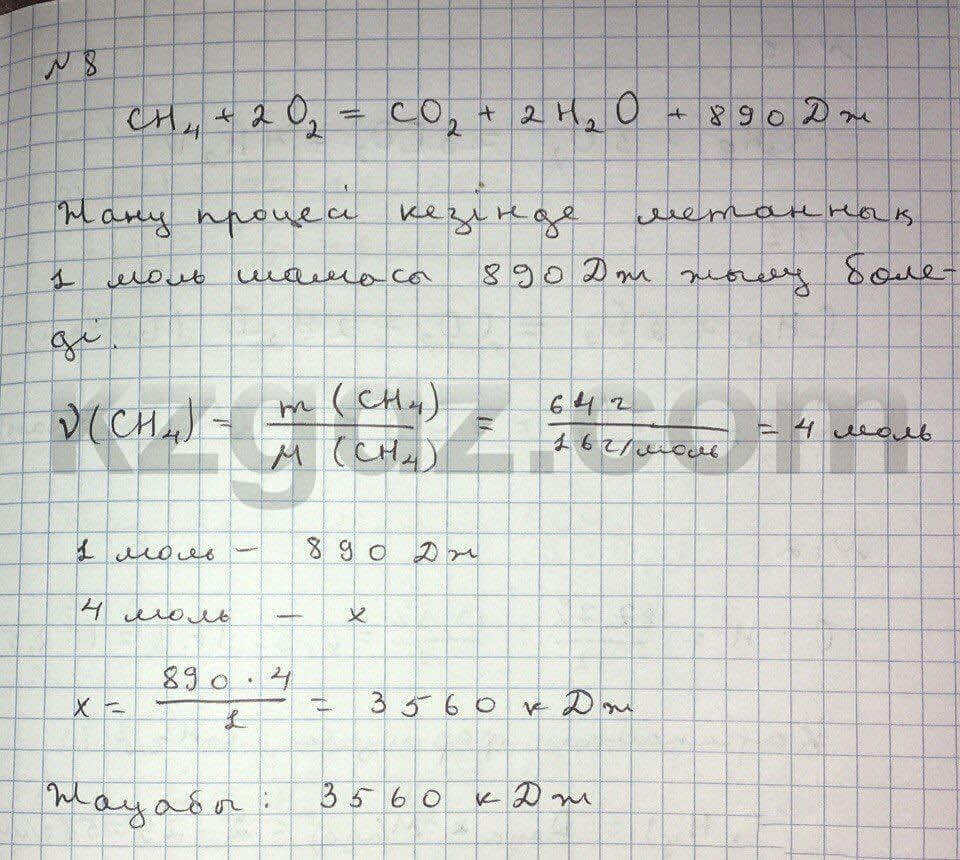 № 8
CH₄ + 2O₂ = CO₂ + 2H₂O + 890 Дж
Жану процесі кезінде метанның
1 моль шамасы 890 Дж жылу бөле-
ді.
ν(CH₄) = m(CH₄) / M(CH₄) = 64 г / 16 г/моль = 4 моль
kzgdz.com
1 моль – 890 Дж
4 моль – x
x = 890 · 4 / 1 = 3560 кДж
Жауабы: 3560 кДж